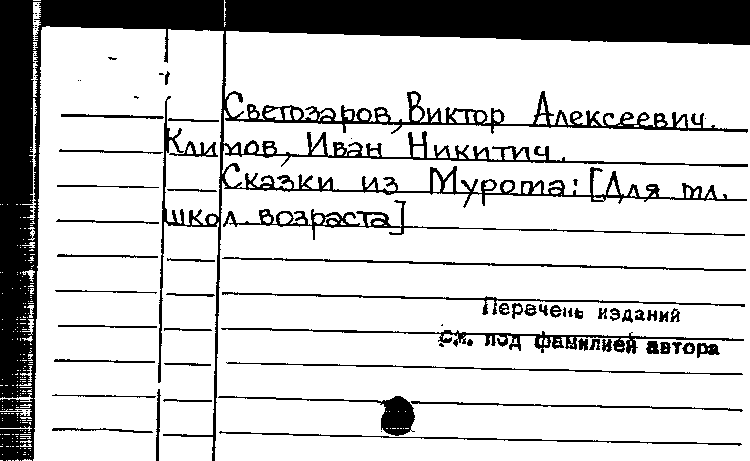 Светозаров, Виктор Алексеевич.
Климов, Иван Никитич.
Сказки из Мурома: [Для мл.
школ. возраста]
Перечень изданий
см. под фамилией автора